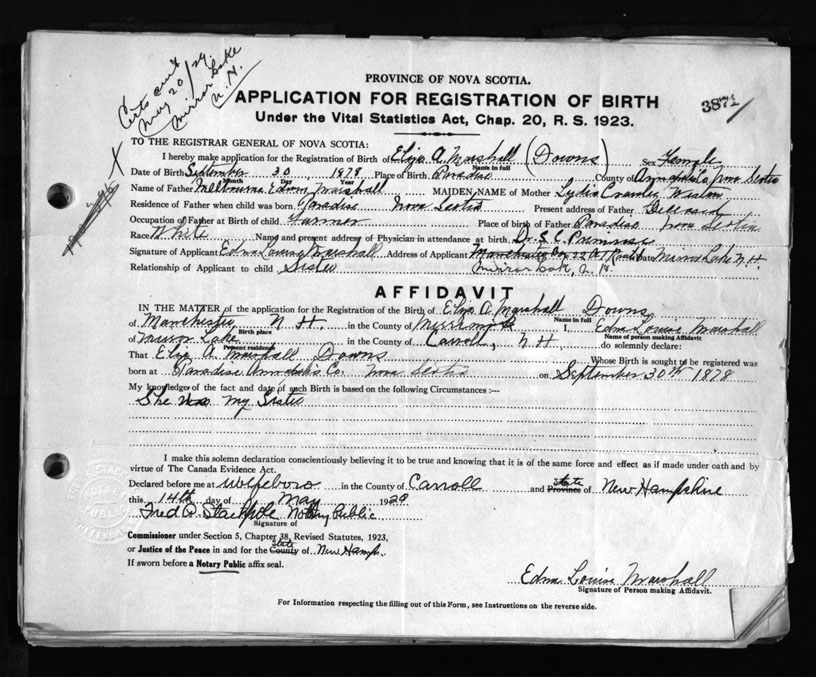 Certs cent
May 20/29
Mirror Lake
N. H.
PROVINCE OF NOVA SCOTIA.
APPLICATION FOR REGISTRATION OF BIRTH
Under the Vital Statistics Act, Chap. 20, R. S. 1923.
TO THE REGISTRAR GENERAL OF NOVA SCOTIA:
I hereby make application for the Registration of Birth of Eliza A. Marshall (Downs) Sex Female
Name in full
Date of Birth September 30, 1878 Place of Birth Paradise County of Annapolis Nova Scotia
Month Day Year
Name of Father Melbourne Edwin Marshall MAIDEN NAME of Mother Lydia
Residence of Father when child was born Paradise Nova Scotia Present address of Father Deceased
Occupation of Father at Birth of child Farmer Place of birth of Father Paradise Nova Scotia
Race White Name and present address of Physician in attendance at birth Dr. S. C. Primrose
Signature of Applicant Edna Louise Marshall Address of Applicant Manchester Mirror Lake N. H.
Relationship of Applicant to child Sister Mirror Lake, N. H.
AFFIDAVIT
IN THE MATTER of the application for the Registration of the Birth of Eliza A. Marshall Downs
Name in full
of Manchester N H. in the County of I, Edna Louise Marshall
Birth place Name of person making Affidavit
of Mirror Lake in the County of Carroll, N H, do solemnly declare:
Present residence
That Eliza A Marshall Downs Whose Birth is sought to be registered was
born at Paradise Annapolis Co. Nova Scotia on September 30th 1878
My knowledge of the fact and date of such Birth is based on the following Circumstances:—
She was my Sister
I make this solemn declaration conscientiously believing it to be true and knowing that it is of the same force and effect as if made under oath and by
virtue of The Canada Evidence Act.
Declared before me at Wolfeboro in the County of Carroll and State Province of New Hampshire
this 14th day of May 1929
Fred A. Stackpole Notary Public
Signature of
Commissioner under Section 5, Chapter 38, Revised Statutes, 1923,
or Justice of the Peace in and for the State County of New Hamp.
If sworn before a Notary Public affix seal.
Edna Louise Marshall
Signature of Person making Affidavit.
For Information respecting the filling out of this Form, see Instructions on the reverse side.